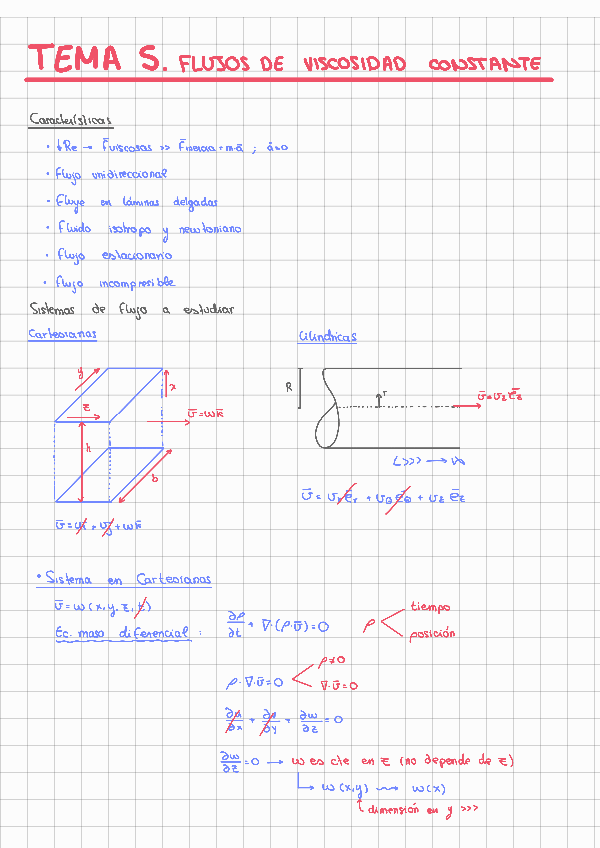 TEMA 5. FLUJOS DE VISCOSIDAD CONSTANTE
Características
· ↓Re → F̄viscosas >> F̄inercia = m·ā ; ā=0
· Flujo unidireccional
· Fluye en láminas delgadas
· Fluido isótropo y newtoniano
· Flujo estacionario
· Flujo incompresible
Sistemas de flujo a estudiar
Cartesianas
Cilíndricas
y
x
z
h
b
v̄=wk̄
R
r
v̄=v_z ē_z
L>>> → ∞
v̄=uī + vj̄ + wk̄
v̄ = v_r ē_r + v_θ ē_θ + v_z ē_z
· Sistema en Cartesianas
v̄=w(x,y,z,t)
Ec. masa diferencial :
∂ρ/∂t + ∇·(ρ·v̄)=0
ρ
tiempo
posición
ρ·∇·v̄=0
ρ≠0
∇·v̄=0
∂u/∂x + ∂v/∂y + ∂w/∂z =0
∂w/∂z =0 → w es cte en z (no depende de z)
w(x,y) ⟿ w(x)
dimensión en y >>>